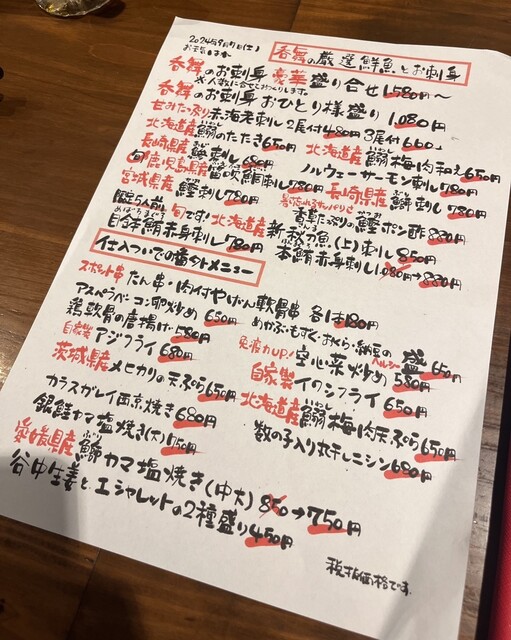 2024年9月7日(土)
呑舞の厳選鮮魚とお刺身
呑舞のお刺身 豪華盛り合せ 1,580円〜
※人数に合せてお作りします。
呑舞のお刺身 おひとり様盛り 1,080円
甘みたっぷり赤海老刺し 2尾付480円 3尾付660円
北海道産 鰯のたたき650円 北海道産 鰯梅肉和え650円
長崎県産 鯵刺し680円 ノルウェーサーモン刺し780円
旬 鹿児島県産 笛吹鯛刺し780円 長崎県産 鰤刺し780円
宮城県産 鰹刺し780円
香軒たっぷり鰹ポン酢880円
限定5人前 旬です! 北海道産 新秋刀魚(上)刺し850円
目鉢鮪赤身刺し780円 本鮪赤身刺し1,080円→880円
仕入ついでの番外メニュー
スポット串 たん串・肉付やげん軟骨串 各1本180円
アスパラベーコン卵炒め650円 めかぶ・もずく・おくら・納豆のヘルシー盛650円
鶏軟骨の唐揚げ580円 免疫力UP! 空心菜炒め580円
自家製 アジフライ680円 自家製 イワシフライ650円
茨城県産 メヒカリの天ぷら650円 北海道産 鰯梅肉天ぷら650円
カラスガレイ西京焼き680円 数の子入り丸干しニシン680円
銀鮭カマ塩焼き(大)750円
愛媛県産 鰤カマ塩焼き(中大)850→750円
谷中生姜とエシャレットの2種盛り450円
税抜価格です。